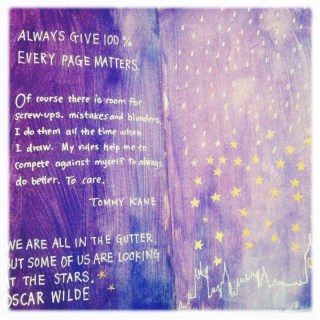 ALWAYS GIVE 100%
EVERY PAGE MATTERS.
Of course there is room for
screw-ups, mistakes and blunders.
I do them all the time when
I draw. My rules help me to
compete against myself to always
do better. To care.
TOMMY KANE
WE ARE ALL IN THE GUTTER,
BUT SOME OF US ARE LOOKING
AT THE STARS.
OSCAR WILDE